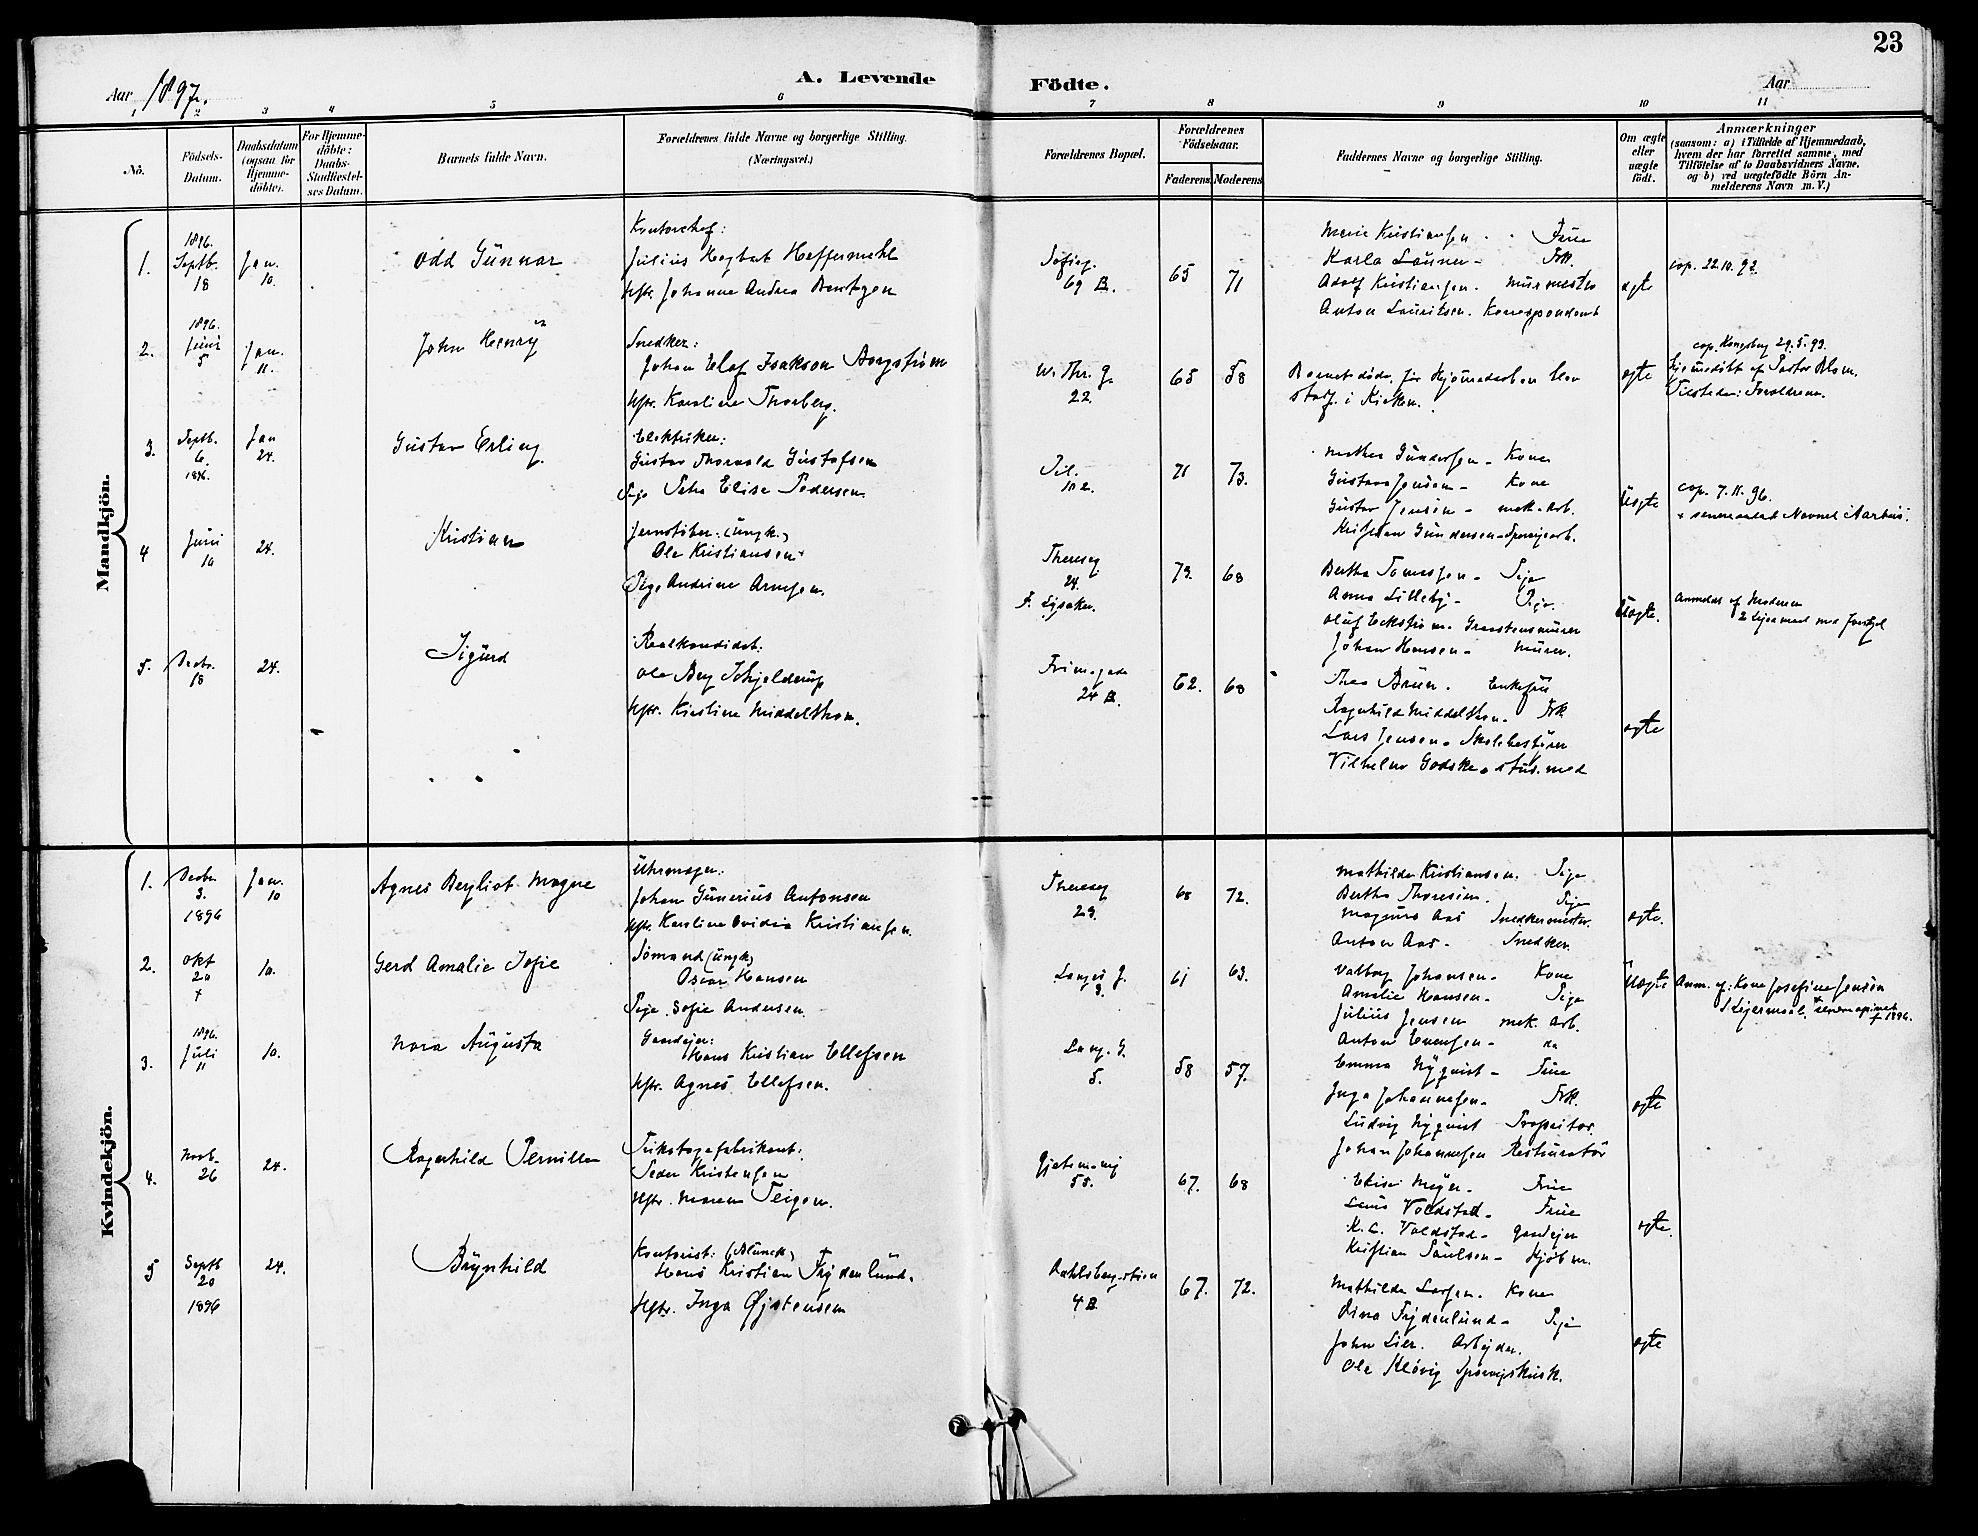 23
Aar 1897.
A. Levende Födte.
Aar
1 2 3 4 5 6 7 8 9 10 11
No.
Födsels-Datum.
Daabsdatum (ogsaa for Hjemmedöbte).
For Hjemmedöbte: Daabs-Stadfæstelses Datum.
Barnets fulde Navn.
Forældrenes fulde Navne og borgerlige Stilling. (Næringsvei.)
Forældrenes Bopæl.
Forældrenes Födselsaar.
Faderens. Moderens.
Faddernes Navne og borgerlige Stilling.
Om ægte eller uægte födt.
Anmærkninger
(saasom: a) i Tilfælde af Hjemmedaab, hvem der har forrettet samme, med Tilföielse af to Daabsvidners Navne. og b) ved uægtefödte Börn Anmelderens Navn m. V.)
Mandkjön.
1. 1896. Septb. 18 Jan. 10. Odd Gunnar
Kontorchef:
Julius Hegbart Heffermehl
Hstr. Johanna Andrea Bentzen
Sofieg. 69 B. 65 71
Marie Kristiansen - Frue
Karla Launer - Frk.
Adolf Kristiansen. Murmester
Anton Lauritsen. Korrespondent
ægte
cop. 22.10.92.
2. 1896. Juni 5 Jan. 11. John Henry
Snedker:
Johan Olaf Isakson Borgstrøm
Hstr. Karoline Thorberg.
W. Thr. G. 22. 65 58
Barnet døde, før Hjemmedaaben blev
stadf. i Kirken.
ægte
cop. Kongsberg 29.5.93.
hjemmedøbt af Pastor Blom.
Tilstede: Forældrene.
3. Septb. 6. 1896. Jan 24. Gustav Erling
Elektriker:
Gustav Thorvald Gustafsen
Pige Petra Elise Pedersen.
Pil. 102. 71 73.
Mathea Gundersen - Kone
Gustava Jensen - Kone
Gustav Jensen - mek. Arb.
Kristian Gundersen - Sporveisarb.
Uægte
cop. 7.11.96.
4 Juni 10 24. Kristian
Jernstøber. (ungk.)
Ole Kristiansen
Pige Andrine Arnesen.
Thereseg. 24. F. Lysaker. 73. 68
Bertha Tomessen - Pige
Anna Lilleby - Pige.
Oluf Eckstrøm. Graastensmurer
Johan Hansen - Murer.
Uægte.
Anmeldt af Moderen
2 Leiermaal med forskjel
5. Decbr. 18 24. Sigurd
Realkandidat:
Ole Berg Schjelderup
Hstr. Kirstine Middelthon.
Frimsgade 24 B. 62. 68
Thea Bruun. Enkefru
Ragnhild Middelthon - Frk
Lars Jensen - Skolebestyrer
Vilhelm Godske - stud. med
ægte
Kvindekjön.
1. Decbr. 3. 1896 Jan. 10 Agnes Bergliot Magne
Uhrmager:
Johan Gunerius Antonsen
Hstr. Karoline Ovidia Kristiansen.
Thereseg 29. 68 72.
Mathilde Kristiansen. Pige
Bertha Thoresen. Pige
Magnus Aas Snedkermester.
Anton Aas - Snedker.
ægte.
2. Okt 20 + 10. Gerd Amalie Sofie
Sømand (ungk.)
Oscar Hansen
Pige. Sofie Andersen
Langes G. 3. 61 63.
Valborg Johansen - Kone
Amalie Hansen - Pige
Julius Jensen mek. Arb.
Anton Evensen - do
Uægte
Anm. af: Kone Josefine Jensen
1 Leiermaal.
3. 1896. Juli 11 10. Nora Augusta
Gaardejer:
Hans Kristian Ellefsen
Hstr. Agnes Ellefsen.
Lang. G. 5. 58 57.
Emma Nyquist - Frue
Inga Johannesen - Frk.
Ludvig Nyquist Proprietær.
Johan Johannesen Restauratør
ægte
4. Novb. 26 24. Ragnhild Pernille
Trikotagefabrikant:
Peder Kristensen
Hstr. Maren Teigen.
Gjetemsvei 55. 67. 68
Elise Meyer - Frue
Lena Voldstad - Frue
K. C. Voldstad - gaardejer
Kristian Paulsen - Kjøbm.
ægte.
5 Septb 20 1896 24. Brynhild
Kontorist: (Blunck)
Hans Kristian Frydenlund.
Hstr. Inga Øjstensen
Dahlsbergstien 4 B. 67. 72.
Mathilde Larsen. Kone
Dina Frydenlund - Pige
John Lier. Arbejder.
Ole Kløvig Sporveiskusk.
ægte